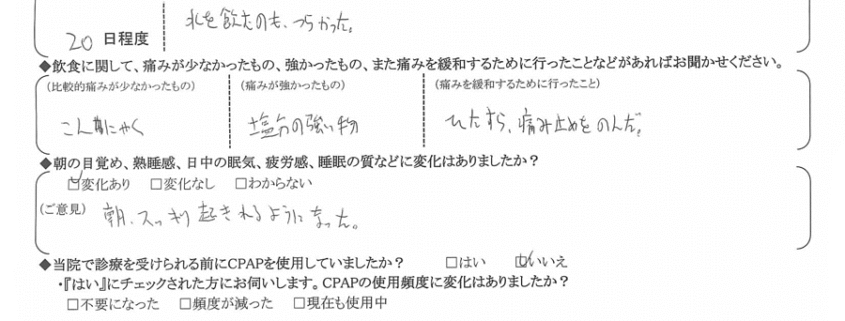 水を飲むのも、つらかった。
20 日程度
◆飲食に関して、痛みが少なかったもの、強かったもの、また痛みを緩和するために行ったことなどがあればお聞かせください。
(比較的痛みが少なかったもの) (痛みが強かったもの) (痛みを緩和するために行ったこと)
こんにゃく 塩分の強い物 ひたすら、痛み止めをのんだ。
◆朝の目覚め、熟睡感、日中の眠気、疲労感、睡眠の質などに変化はありましたか？
☑変化あり □変化なし □わからない
(ご意見) 朝、スッキリ起きれるようになった。
◆当院で診療を受けられる前にCPAPを使用していましたか？ □はい ☑いいえ
・『はい』にチェックされた方にお伺いします。CPAPの使用頻度に変化はありましたか？
□不要になった □頻度が減った □現在も使用中